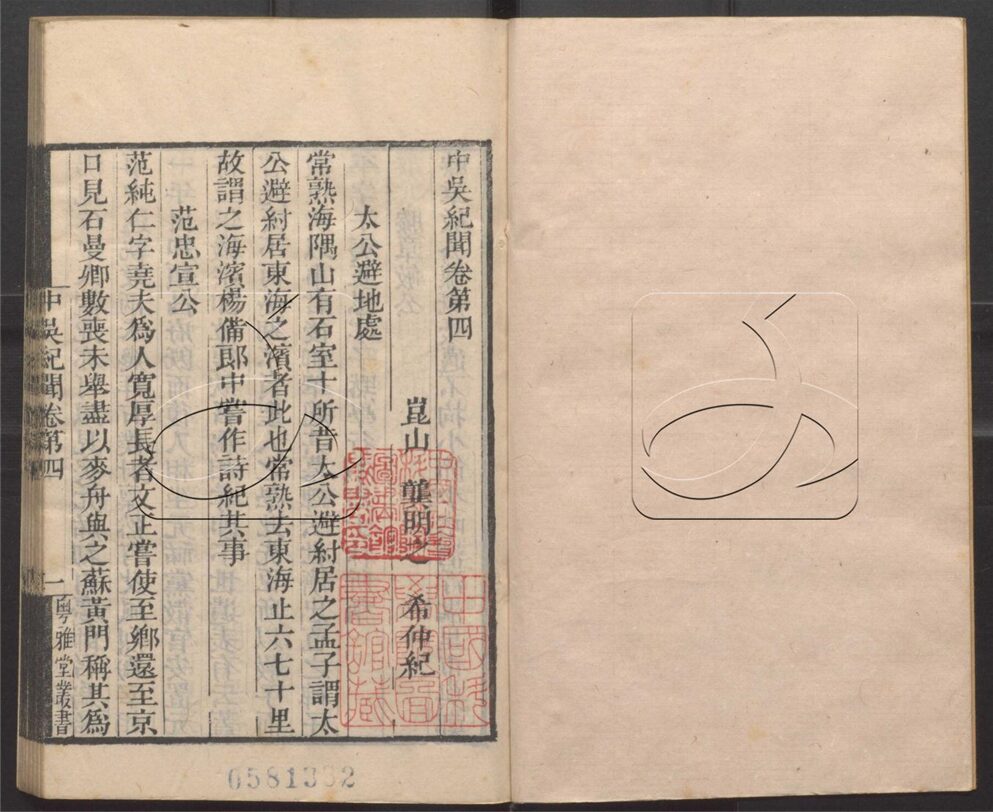 中吳紀聞卷第四
崑山 龔明之 希仲紀
太公避地處
常熟海隅山有石室十所昔太公避紂居之孟子謂太
公避紂居東海之濱者此也常熟去東海止六七十里
故謂之海濱楊備郎中嘗作詩紀其事
范忠宣公
范純仁字堯夫爲人寬厚長者文正嘗使至鄉還至京
口見石曼卿數喪未舉盡以麥舟與之蘇黃門稱其爲
中吳紀聞卷第四 一 粵雅堂叢書
0581332